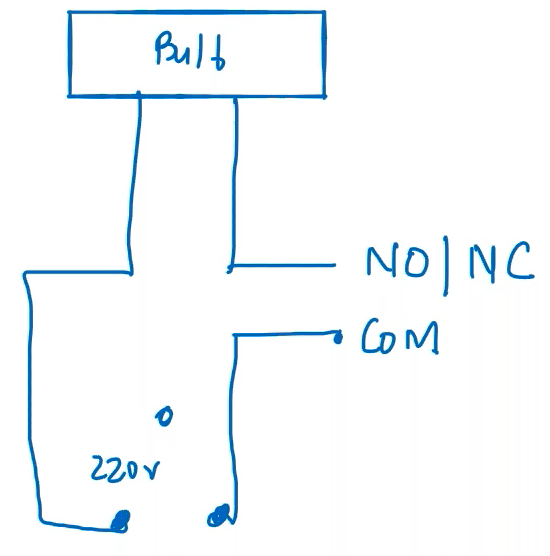 Bulb
NO|NC
COM
220v